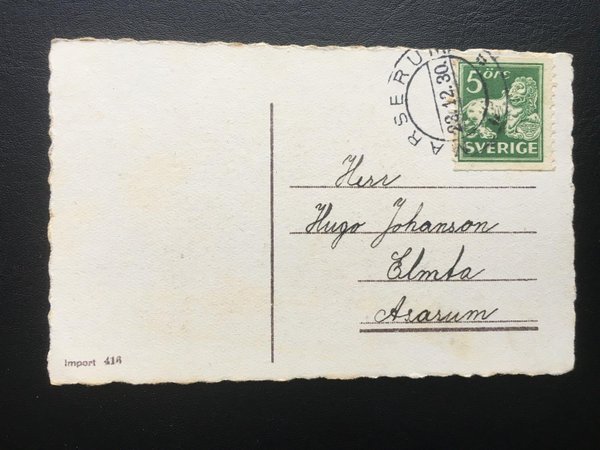 ARSERUM
23.12.30.
5 ÖRE
SVERIGE
Herr
Hugo Johanson
Elmta
Asarum
Import 416